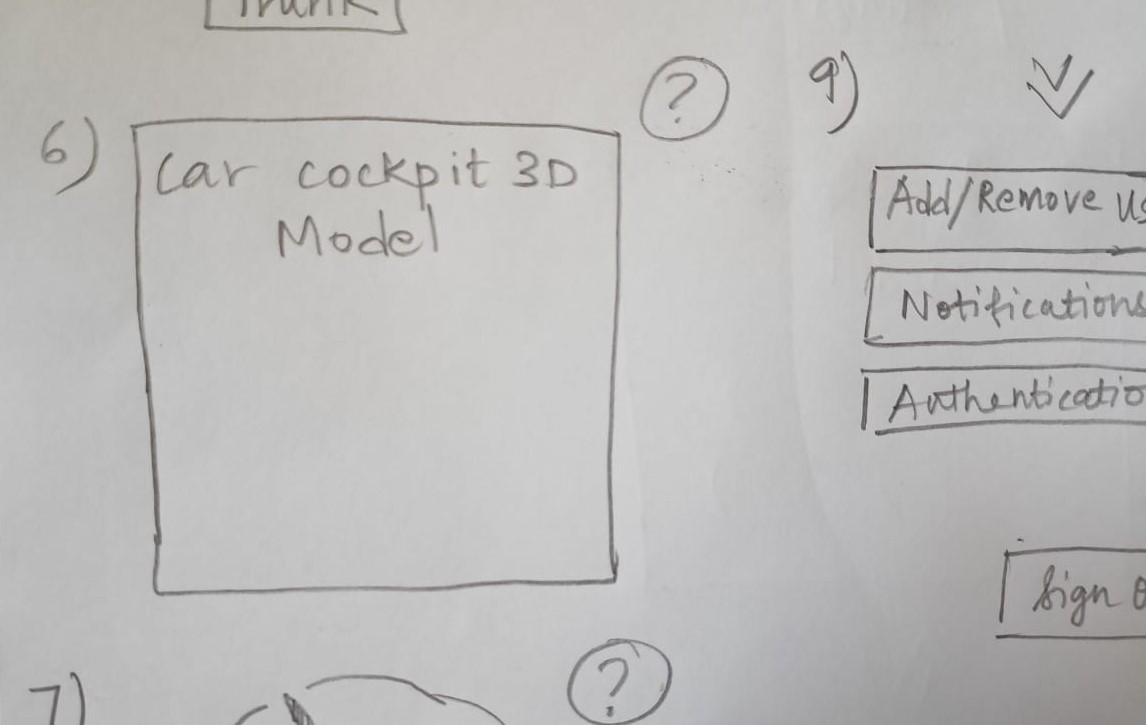 Trunk
6)
Car cockpit 3D
Model
?
9)
Add/Remove Us
Notifications
Authenticatio
Sign O
7)
?